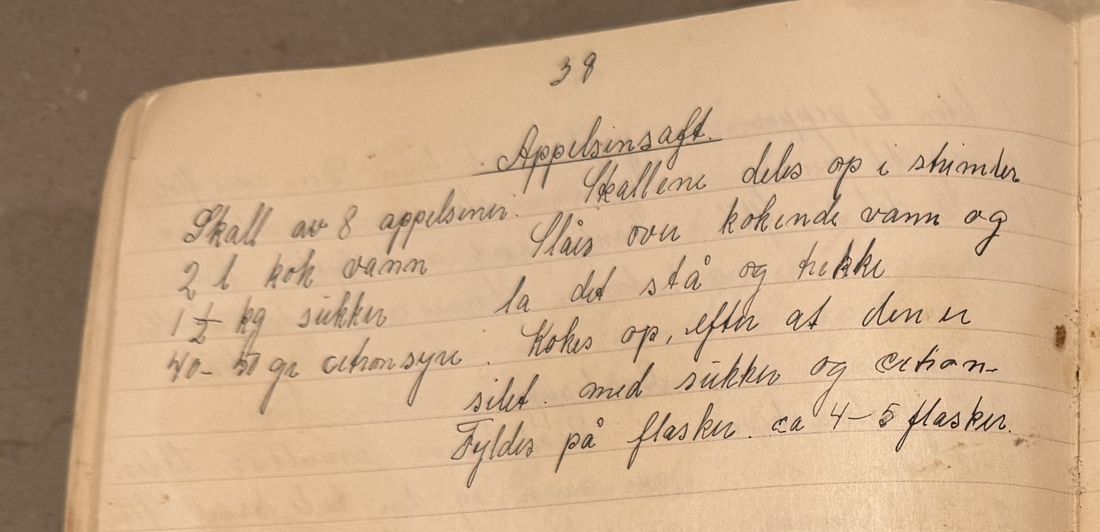 38
Appelsinsaft.
Skall av 8 appelsiner.
2 l kok vann
1 1/2 kg sukker
40-50 gr citronsyre.
Skallene deles op i strimler
Slåes over kokende vann og
la det stå og trekke
Kokes op, efter at den er
silt. med sukker og citron-
Fyldes på flasker. ca 4-5 flasker.